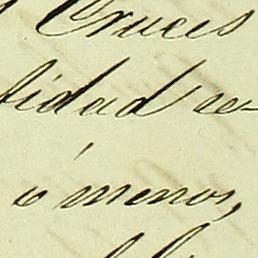 Cruces
lidad re-
ó menos,